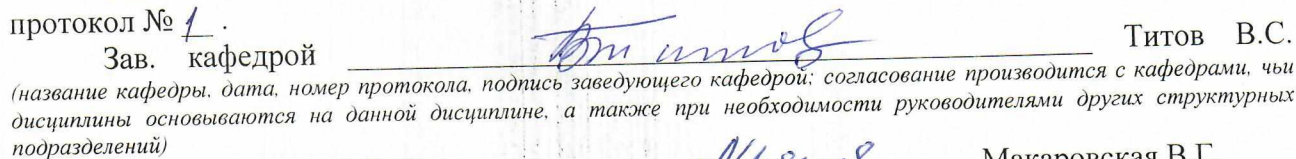 протокол № 1 .
Зав. кафедрой Титов Титов В.С.
(название кафедры, дата, номер протокола, подпись заведующего кафедрой; согласование производится с кафедрами, чьи
дисциплины основываются на данной дисциплине, а также при необходимости руководителями других структурных
подразделений)
Макаровская В.Г.